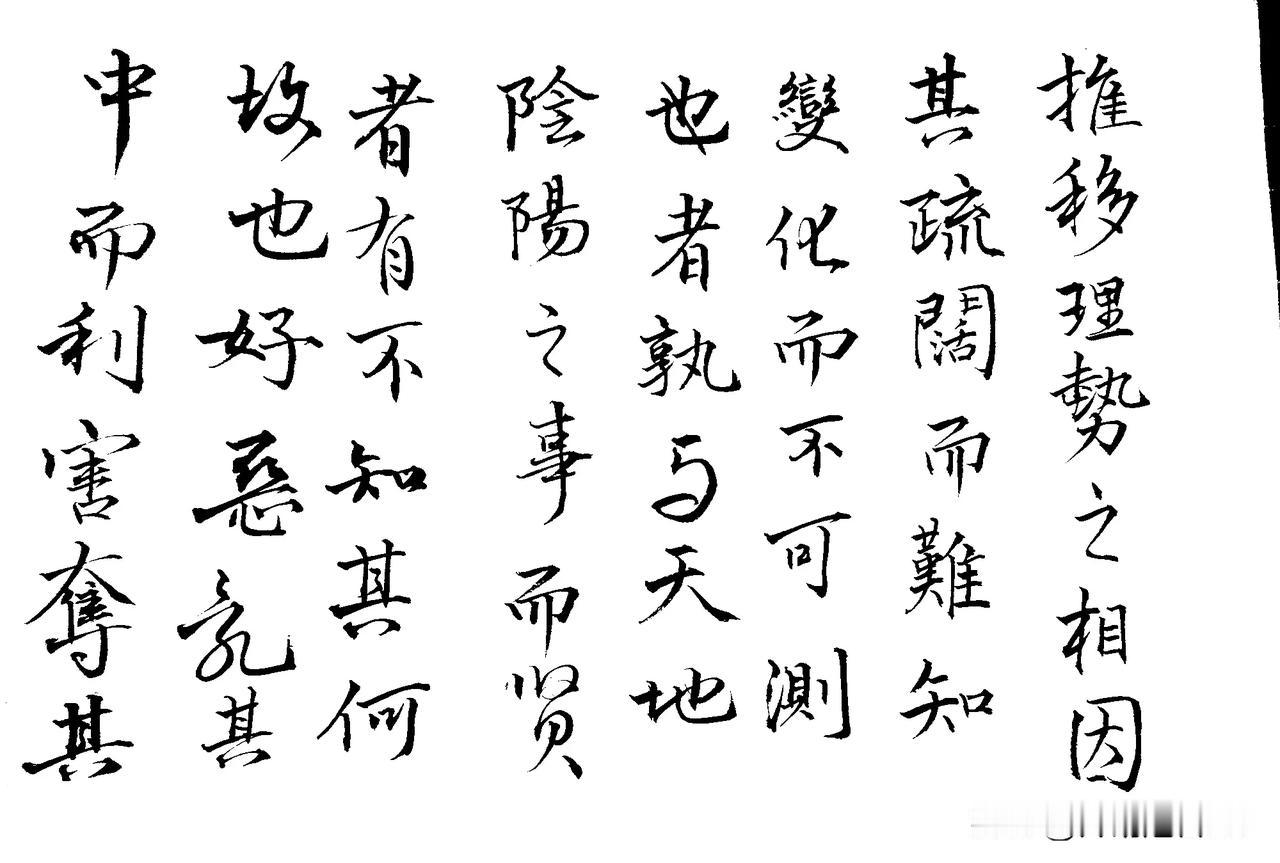 推移理勢之相因
其疏闊而難知
變化而不可測
也者孰与天地
陰陽之事而賢
者有不知其何
故也好惡亂其
中而利害奪其